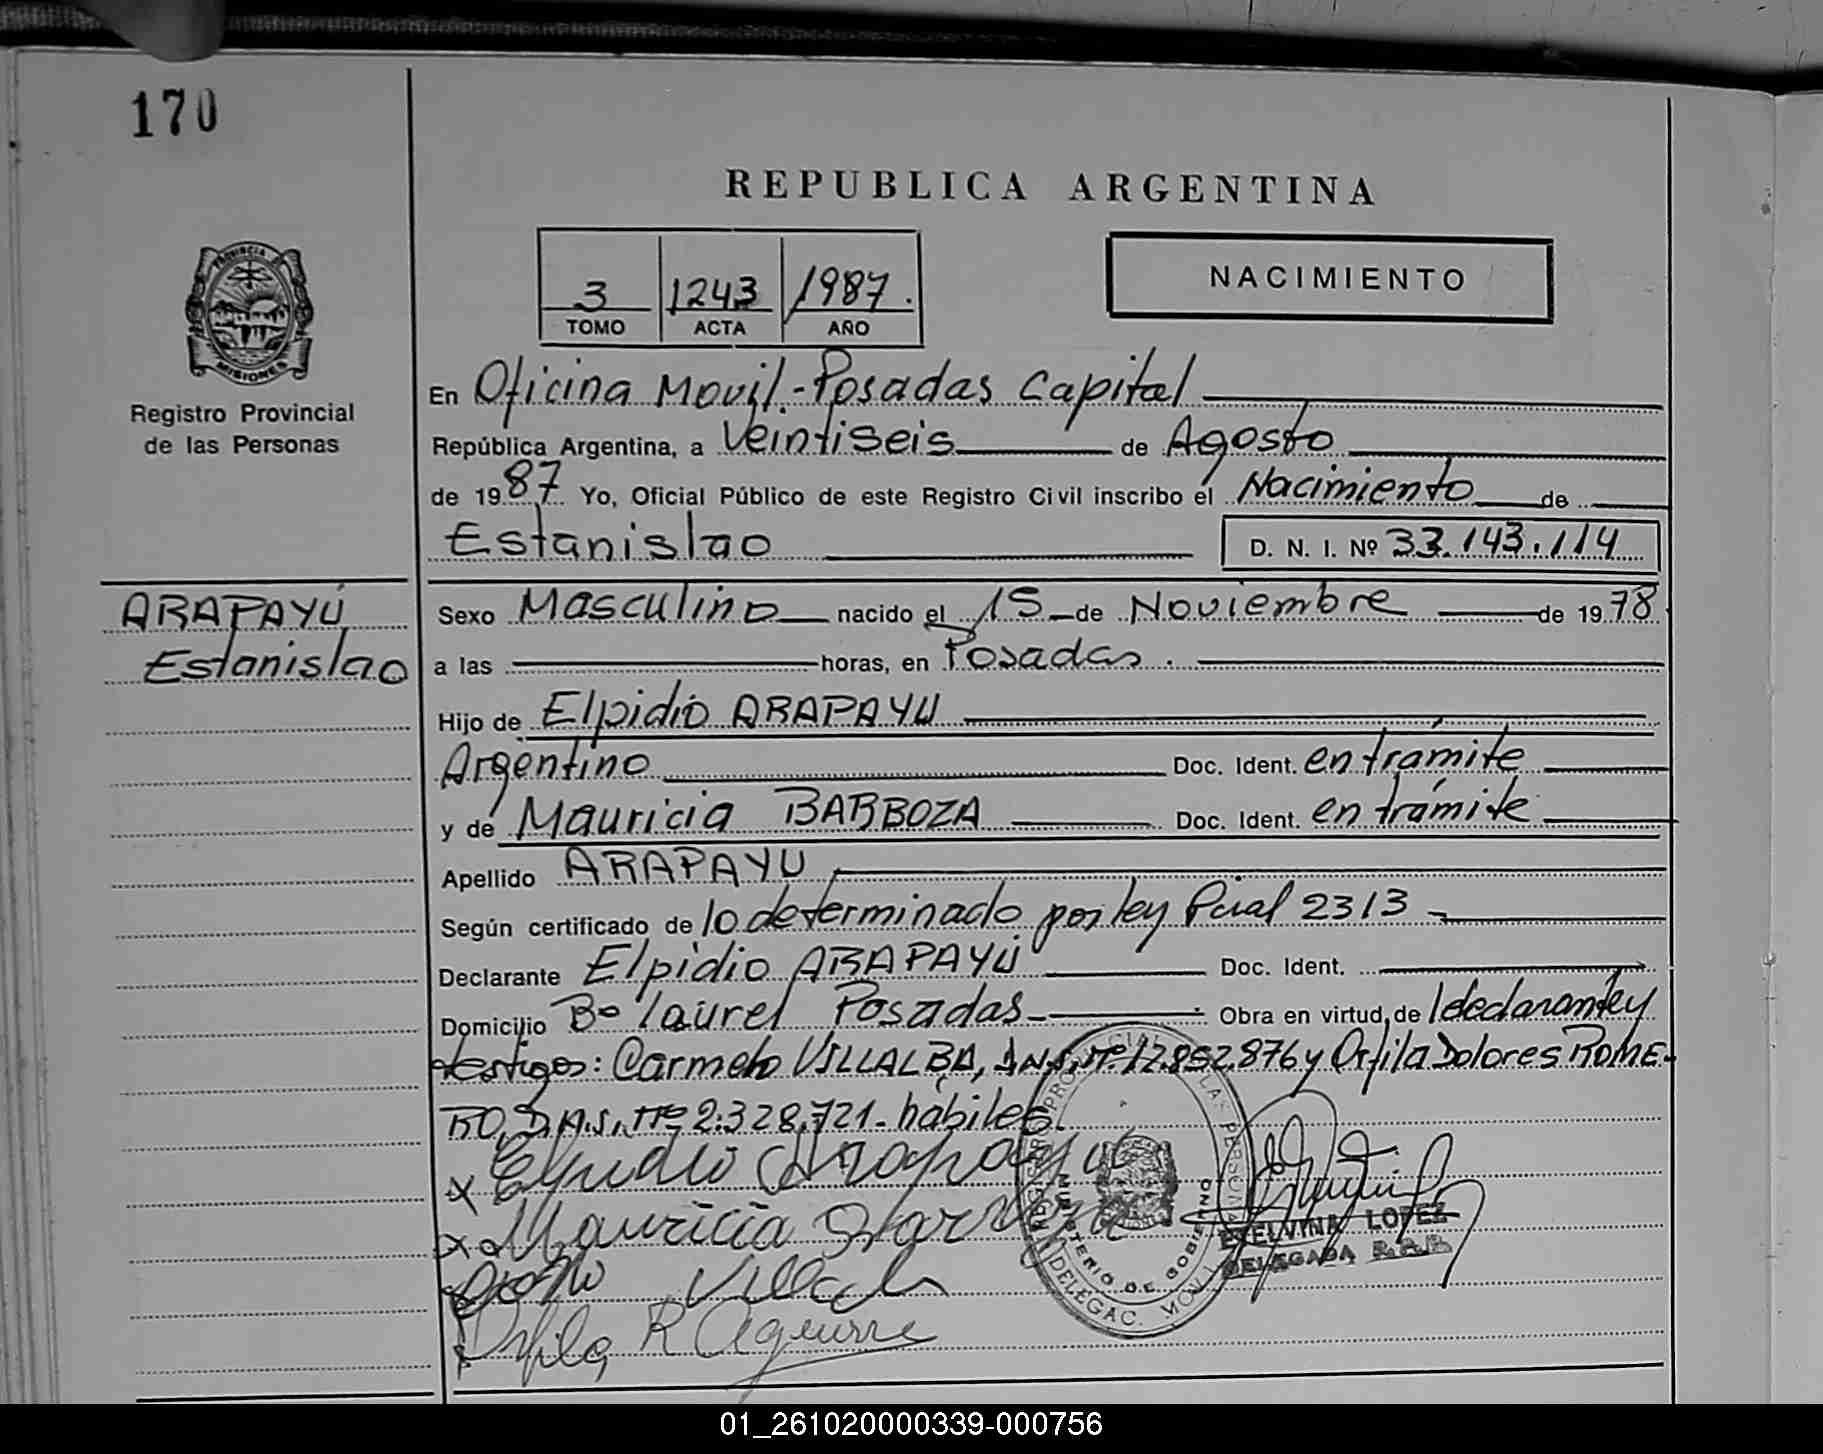 170
REPUBLICA ARGENTINA
3 1243 1987.
TOMO ACTA AÑO
NACIMIENTO
PROVINCIA DE
MISIONES
Registro Provincial
de las Personas
En Oficina Movil.-Posadas Capital
República Argentina, a Veintiseis de Agosto
de 1987 Yo, Oficial Público de este Registro Civil inscribo el Nacimiento de
Estanislao D. N. I. Nº 33.143.114
ARAPAYÚ
Estanislao
Sexo Masculino nacido el 15 de Noviembre de 1978
a las horas, en Posadas.
Hijo de Elpidio ARAPAYU
Argentino Doc. Ident. en trámite
y de Mauricia BARBOZA Doc. Ident. en trámite
Apellido ARAPAYU
Según certificado de lo determinado por ley Pcial 2313
Declarante Elpidio ARAPAYÚ Doc. Ident.
Domicilio Bº laurel Posadas Obra en virtud de
testigos: Carmelo VILLALBA, Nº 12.852.876 y Orfila Dolores ROME-
RO, nº 2.328.721- hábiles.
x Elpidio Arapayu
x Mauricia
Villalba
Orfila R Aguirre
MINISTERIO DE GOBIERNO
DELEGAC. MOVIL
ETELVINA LOPEZ
DELEGADA
01_261020000339-000756